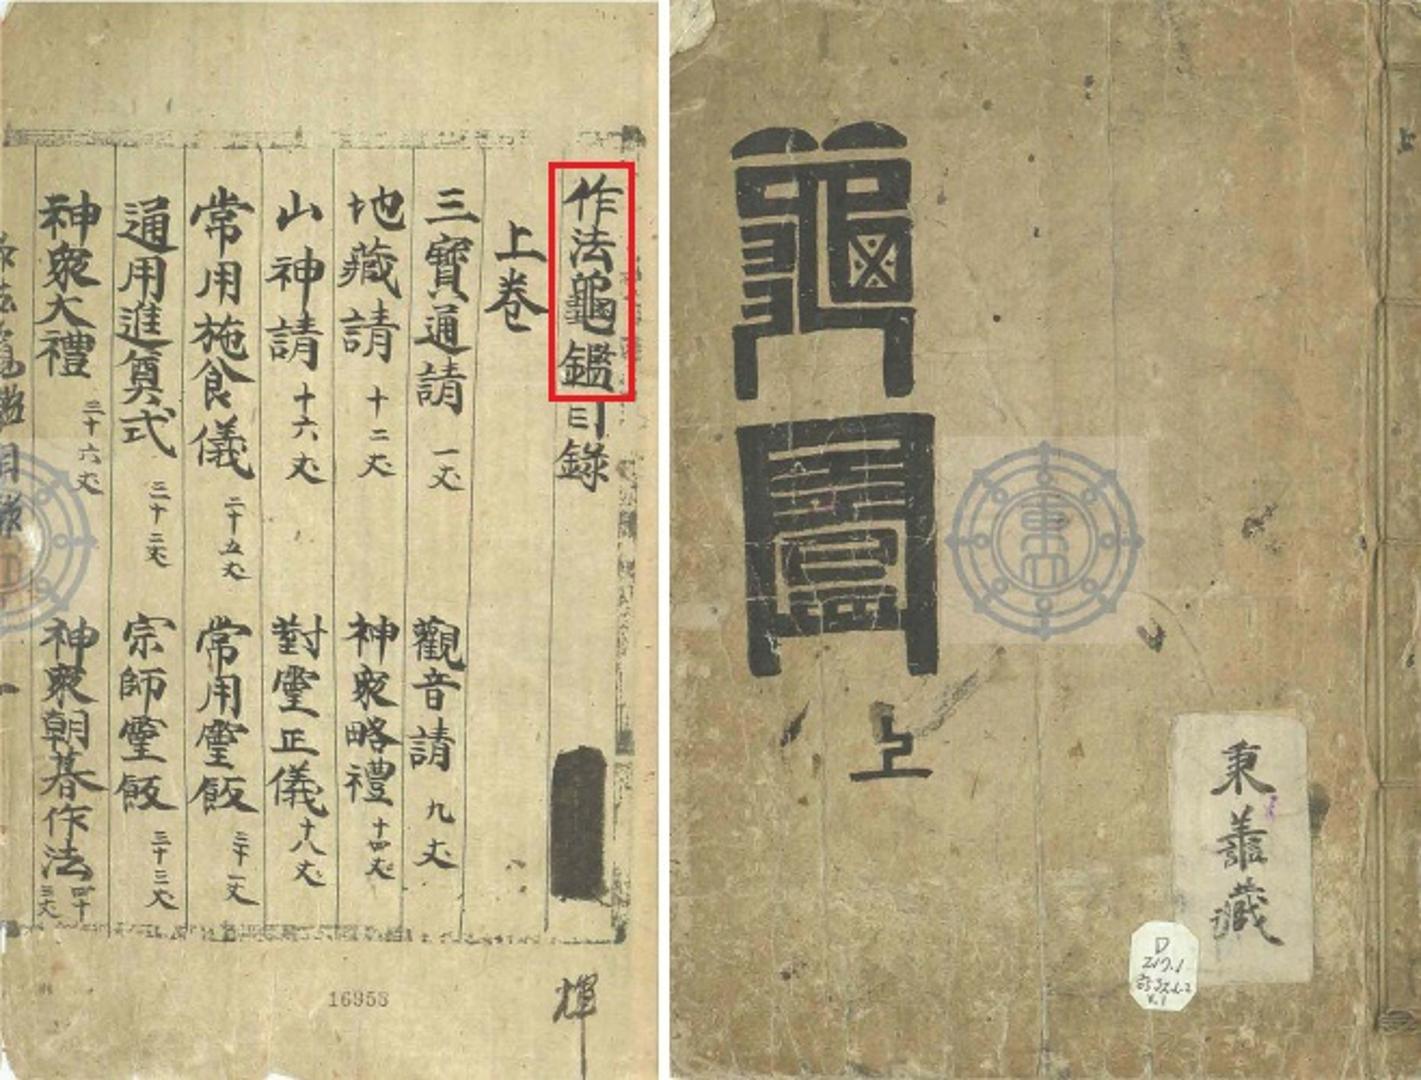 作法龜鑑目錄
上卷
三寶通請 一丈
觀音請 九丈
地藏請 十二丈
神衆略禮 十四丈
山神請 十六丈
對靈正儀 十八丈
常用施食儀 二十五丈
常用靈飯 三十一丈
通用進奠式 三十二丈
宗師靈飯 三十三丈
神衆大禮 三十六丈
神衆朝暮作法 四十三丈
輝
16958
龜
上
秉
藏
D
217.1
V.1
上